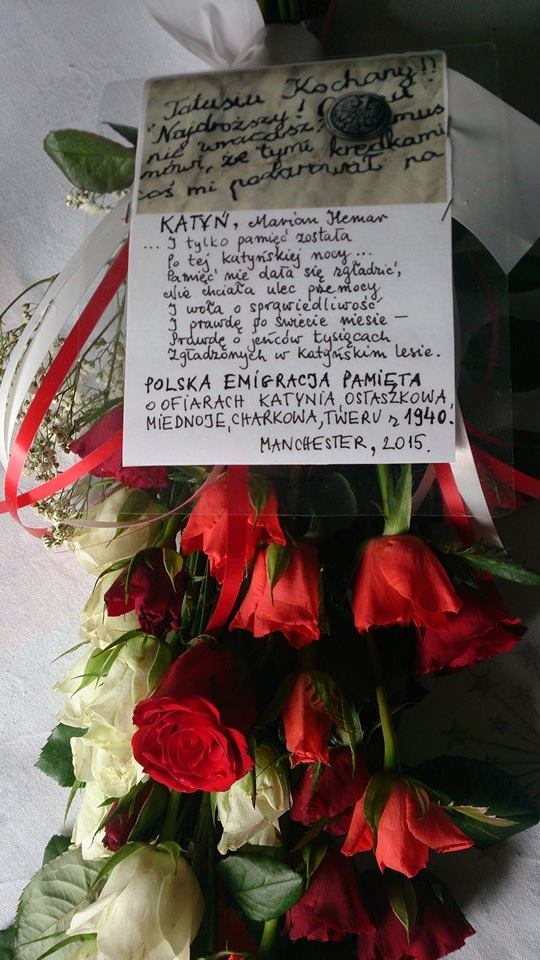 Tatusiu Kochany!!
Najdroższy!
nie wracasz? mus
mówi, że tymi kredkami
coś mi podarował na
KATYŃ, Marian Hemar
... I tylko pamięć została
Po tej katyńskiej nocy ...
Pamięć nie dała się zgładzić,
Nie chciała ulec przemocy
I woła o sprawiedliwość
I prawdę po świecie niesie –
Prawdę o jeńców tysiącach
Zgładzonych w Katyńskim lesie.
POLSKA EMIGRACJA PAMIĘTA
O OFIARACH KATYNIA, OSTASZKOWA,
MIEDNOJE, CHARKOWA, TWERU z 1940.
MANCHESTER, 2015.